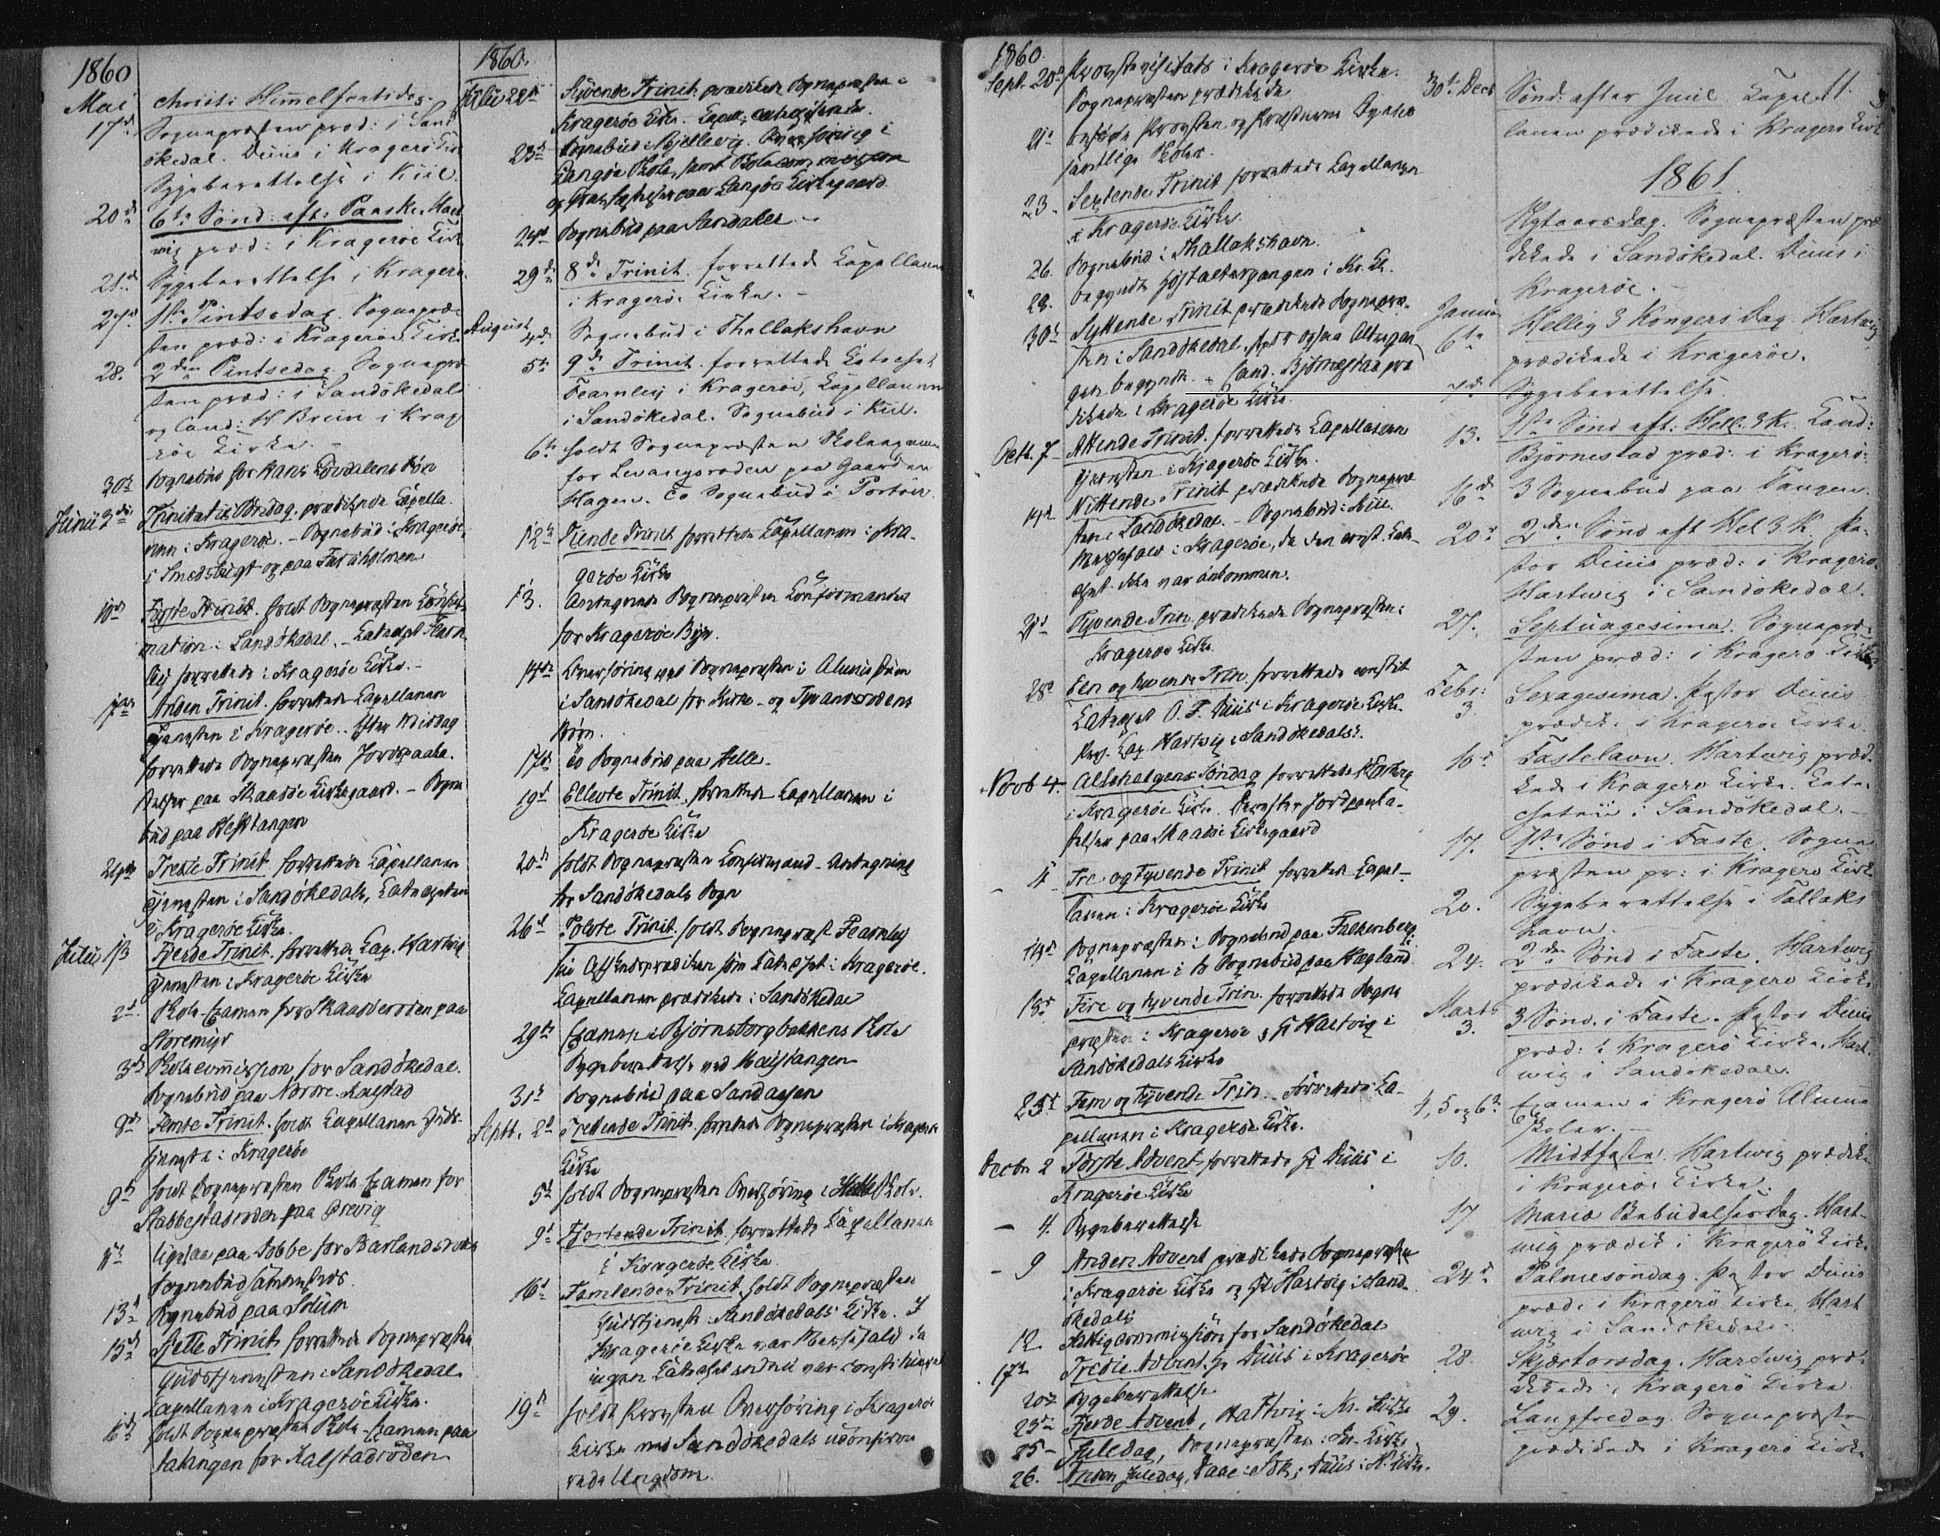 1860
Mai
christi Himmelfartsdag.
17d Sognepræsten præd: i Sand
økedal. Duus i Kragerø Kir
Sygeberettelse i Kiil.
20d 6te Sønd: eft: Paaske. Hart
wig præd: i Kragerøe Kirk
21d Sygeberettelse i Kragerø.
27d 1ste Pintsedag. Sognepræ
sten præd: i Kragerøe Kirke
28. 2den Pintsedag Sognepræ
sten præd: i Sandökedal
og Cand: H Brun i Krag
røe Kirke.
30te Sognebud for Hans Lövdalens Kön
Junii 3die Trinitatis Söndag. prædikede Capella
nen i Kragerøe. - Sognebud i Kragerøe,
i Smedsbugt og paa Furuholmen
10de Første Trinit. holdt Sognepræsten Confir
mation i Sandökedal. - Catechet Fearn
ley forrettede i Kragerøe Kirke. -
17de Anden Trinit. forrettede Capellanen
Tjenesten i Kragerøe. Efter Middag
forrettede Sognepræsten Jordpaaka
stelser paa Skaadöe Kirkegaard. - Sogne
bud paa Hestangen
24de Tredie Trinit. forrettede Capellanen
Tjenesten i Sandökedals, Catecheten
i Kragerøe Kirke.
Julii 1ste Fjerde Trinit. forrettede Cap. Hartvig
Tjenesten i Kragerøe Kirke
2d Skole-Examen for Skaadøroden paa
Storemyr
3d Skolecommission for Sandökedal.
Sognebud paa Nordre Kalstad
8de Femte Trinit. holdt Capellanen Guds-
tjeneste i Kragerøe
9d holdt Sognepræsten Skole-Examen for
Stabbestadroden paa Brevig
11te ligesaa paa Tobbe for Barlandsroden
Sognebud sammesteds.
13d Sognebud paa Solum
15de Sjette Trinit. forrettede Sognepræsten
Gudstjenesten i Sandökedal
Capellanen i Kragerøe Kirke.
16de holdt Sognepræsten Skole-Examen paa
Tatangen for Kalstadroden
1860.
Julii 22d Syvende Trinit. prædikede Sognepræsten i
Kragerøe Kirke. Capell. catechiserede
23d Sognebud i Kjellevig. Overhøring i
Langöe Skole, samt Skolecommission
og Jordfæstelser paa Langöe Kirkegaard
24d Sognebud paa Sandaker
29d 8de Trinit. forrettede Capellanen
i Kragerøe Kirke. -
August 4d. Sognebud i Thallakshavn
5te 9de Trinit. forrettede Catechet
Fearnley i Kragerøe, Capellanen
i Sandökedal. Sognebud i Kiil.
6te holdt Sognepræsten Skoleexamen
for Levangsroden paa Gaarden
Hagen. To Sognebud i Portör.
12te Tiende Trinit forrettede Capellanen i Kra-
geröe Kirke
13. Antegnede Sognepræsten Confirmander
for Kragerøe Bye.
14de Overhöring ved Sognepræsten i Alunsstuen
i Sandökedal for Kirke- og Tyvandsrodens
Börn.
17de to Sognebud paa Helle.
19d Ellevte Trinit. forrettede Capellanen i
Kragerøe Kirke
20d holdt Sognepræsten Confirmand-Antegning
for Sandökedals Sogn
26d Tolvte Trinit. holdt Sognepræst Fearnley
sin Afskedsprædiken som Catechet i Kragerøe.
Capellanen prædikede i Sandökedal
29de Examen i Björnsborgbakkens Skole
Sygeberettelse ved Kalstangen
31te Sognebud paa Sandaasen
Septb. 2d Trettende Trinit. forrettede Sognepræsten i Kragerøe
Kirke
5te holdt Sognepræsten Overhöring i Helle Skole.
9d Fjortende Trinit. forrettede Capellanen
i Kragerøe Kirke.
16d Femtende Trinit. holdt Sognepræsten
Gudstjenest i Sandökedals Kirke. I
Kragerøe Kirke var Messefald da
ingen Catechet endnu var constitueret
19d holdt Provsten Overhöring i Kragerøe
Kirke med Sandökedals uconfirme
rede Ungdom.
1860.
Sept. 20d Provstevisitats i Kragerøe Kirke.
Sognepræsten prædikede
21d besøgte Provsten og Præsterne Byens
samtlige Skoler.
23. Sextende Trinit forrettede Capellanen
i Kragerøe Kirke
26. Sognebud i Thallakshavn.
28. begyndte Höstaltergangen i Kr. K.
30te Syttende Trinit prædikede Sognepræ
sten i Sandökedal, hvor ogsaa Altergan
gen begyndte. - Cand. Björnestad præ
dikede i Kragerøe Kirke.
Octb. 7 Attende Trinit. forrettede Capellanen
Tjenesten i Kragerøe Kirke.
14d Nittende Trinit prædikede Sognepræ
sten i Sandökedal. - Sognebud i Kiil.
Messefald i Kragerøe, da den const. Cate-
chet ikke var ankommen.
21d Tyvende Trin. prædikede Sognepræsten i
Kragerøe Kirke
28d Een og tyvende Trin. forrettede constit
Catechet O. F. Duus i Kragerøe Kirke.
Pers. Cap. Hartwig i Sandökedals.
Novb 4. Allehelgens Söndag forrettede
i Kragerøe Kirke. Derefter Jordpaaka-
stelser paa Skaadöe Kirkegaard
11 Tre og tyvende Trinit forrettede Capel-
lanen i Kragerøe Kirke
14d Sognepræsten i Sognebud paa Falkenberg
Capellanen i to Sognebud paa Hægland
18d Fire og tyvende Trin. forrettede Sogne
præsten i Kragerøe og Hr Hartvig i
Sandökedals Kirke
25d Fem og tyvende Trin. forrettede Ca-
pellanen i Kragerøe Kirke.
Decbr. 2 Förste Advent forrettede Hr Duus i
Kragerøe Kirke
- 4. Sygeberettelse
- 9 Anden Advent prædikede Sognepræsten
i Kragerøe Kirke og Hr Hartvig i Sand-
ökedals
12 Fattigcommission for Sandökedal
17de Tredie Advent. Hr Duus i Kragerøe
20de Sygeberettelse
23de Fjerde Advent, Hartvig i Kr. Kirke
25 - Juledag, Sognepræsten i Kr. Kirke
26. Anden Juledag, Paae i Sdk., Duus i K. Kirke.
11.
30te Decb Sønd: efter Juul. Capel
lanen prædikede i Kragerø Kirk
1861.
Nytaarsdag. Sognepræsten præ
dikede i Sandökedal. Duus i
Kragerøe. -
Januar 6te Hellig 3 Kongers Dag. Hartwig
prædikede i Kragerøe.
7d. Sygeberettelse.
13. 1ste Sønd eft: Hell. 3 K. Cand:
Björnestad præd: i Kragerø.
16d 3 Sognebud paa Tangen.
20d 2den Sønd eft Hel 3 K. Pa-
stor Duus præd: i Kragerø.
Hartwig i Sandökedal.
27. Septuagesima. Sognepræ-
sten præd: i Kragerø Kirke
Febr: 3. Sexagesima. Pastor Duus
prædik. i Kragerøe Kirke
10d Fastelavn. Hartwig præd
kede i Kragerø Kirke. Cate-
cheten i Sandökedal. -
17. 1ste Sønd i Faste. Sogne
præsten pr: i Kragerø Kirk
20. Sygeberettelse i Tallaks
havn.
24. 2de Sønd i Faste. Hartwig
prædikede i Kragerø Kirke
Marts 3. 3 Sønd. i Faste. Pastor Duus
præd: i Kragerö Kirke. Hart-
wig i Sandökedal.
4, 5 og 6te Examen i Kragerö Almue
Skoler. -
10. Midtfaste. Hartwig prædike
i Kragerøe Kirke.
17 Mariæ Bebudelsesdag. Hart-
wig prædik i Kragerö Kirke
24d Palmesöndag. Pastor Duus
præd: i Kragerö Kirke, Hart
wig i Sandökedal.
28. Skjærtorsdag. Hartwig præ-
dikede i Kragerö Kirke
29. Langfredag. Sognepræsten
prædikede i Kragerö Kirke